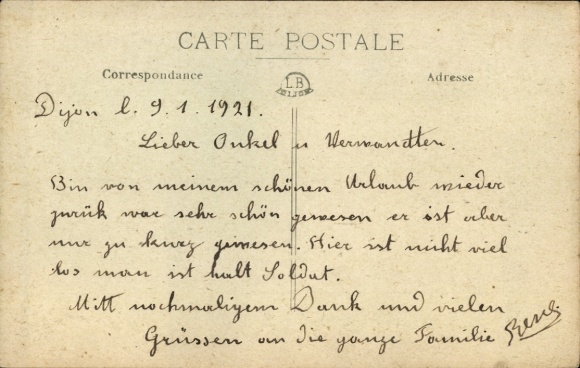 CARTE POSTALE
Correspondance
Adresse
LB
DIJON
Dijon l. 9.1.1921.
Lieber Onkel u Verwandten.
Bin von meinem schönen Urlaub wieder
zurük war sehr schön gewesen er ist aber
nur zu kurz gewesen. Hier ist nicht viel
los man ist halt Soldat.
Mitt nochmaligem Dank und vielen
Grüssen an die ganze Familie